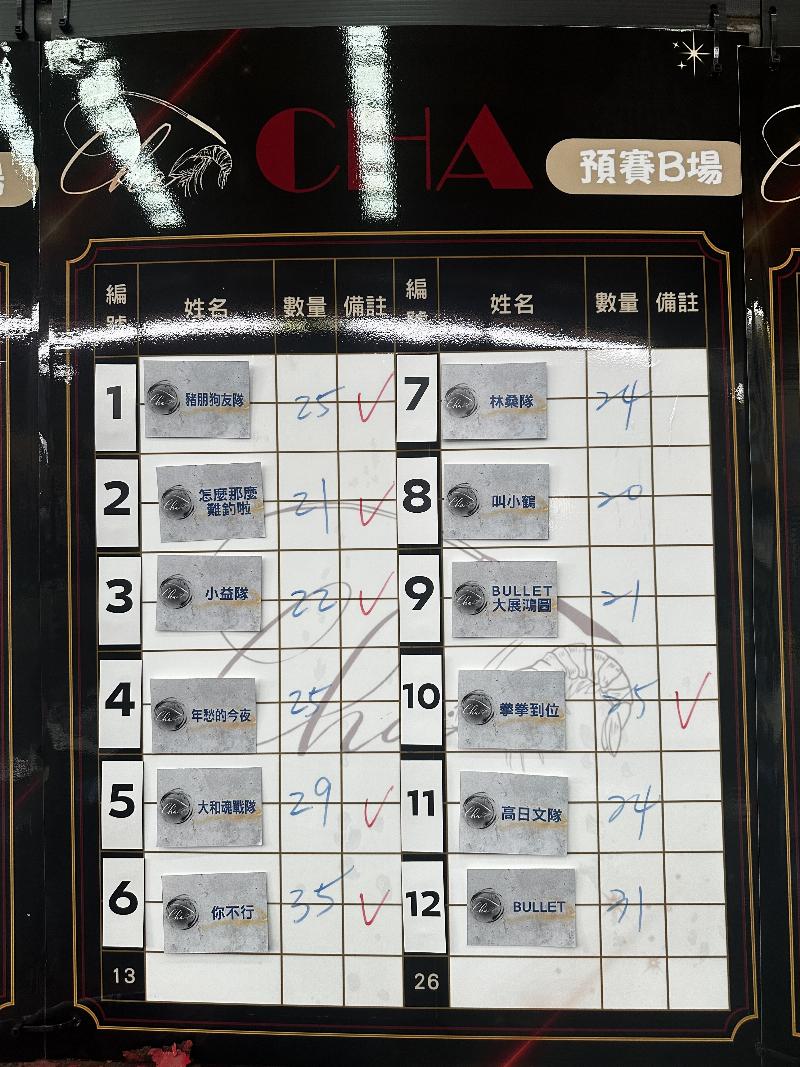 Cha
CHA
預賽B場
編號 姓名 數量 備註 編號 姓名 數量 備註
1 豬朋狗友隊 25 ✓ 7 林桑隊 24
2 怎麼那麼難釣啦 21 ✓ 8 叫小鶴 20
3 小益隊 22 ✓ 9 BULLET大展鴻圖 21
4 年愁的今夜 25 10 拳拳到位 25 ✓
5 大和魂戰隊 29 ✓ 11 高日文隊 24
6 你不行 35 ✓ 12 BULLET 31
13 26